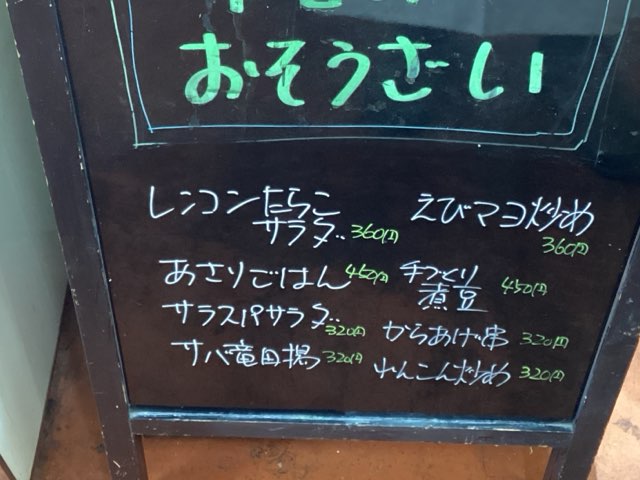 おそうざい
レンコンたらこ
サラダ 360円
あさりごはん 450円
サラスパサラダ
320円
サバ竜田揚 320円
えびマヨ炒め
360円
手づくり
煮豆 450円
からあげ串 320円
れんこん炒め 320円